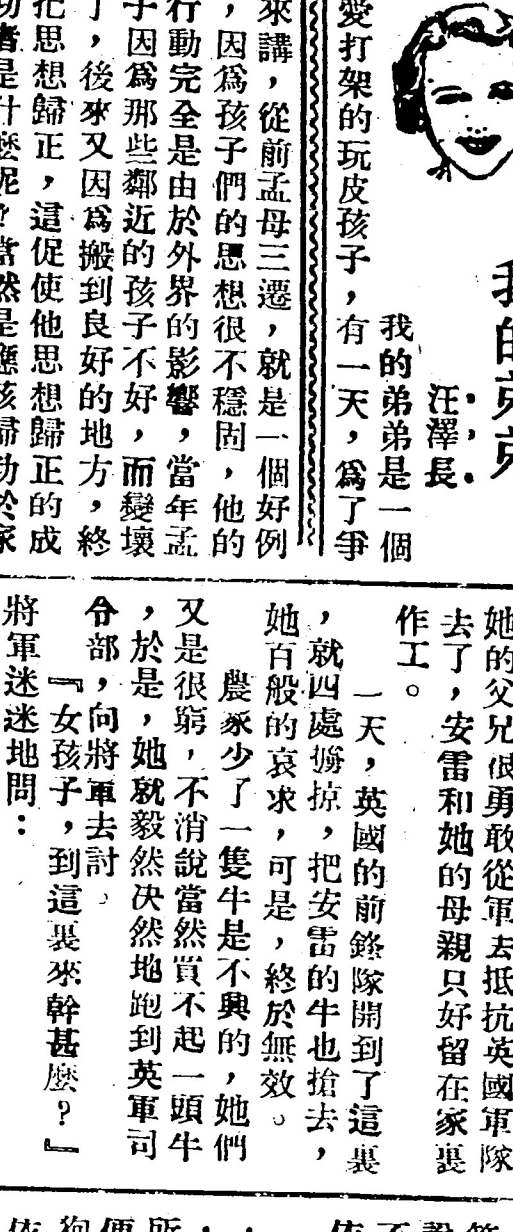 我的弟弟
汪澤長
我的弟弟是一個
愛打架的玩皮孩子，有一天，爲了爭
來講，從前孟母三遷，就是一個好例
，因爲孩子們的思想很不穩固，他的
行動完全是由於外界的影響，當年孟
子因爲那些鄰近的孩子不好，而變壞
了，後來又因爲搬到良好的地方，終
把思想歸正，這促使他思想歸正的成
功者是什麼呢？當然是應該歸功於家
她的父兄很勇敢從軍去抵抗英國軍隊
去了，安雷和她的母親只好留在家裏
作工。
一天，英國的前鋒隊開到了這裏
，就四處擄掠，把安雷的牛也搶去，
她百般的哀求，可是，終於無效。
農家少了一隻牛是不興的，她們
又是很窮，不消說當然買不起一頭牛
，於是，她就毅然决然地跑到英軍司
令部，向將軍去討。
『女孩子，到這裏來幹甚麼？』
將軍迷迷地問：